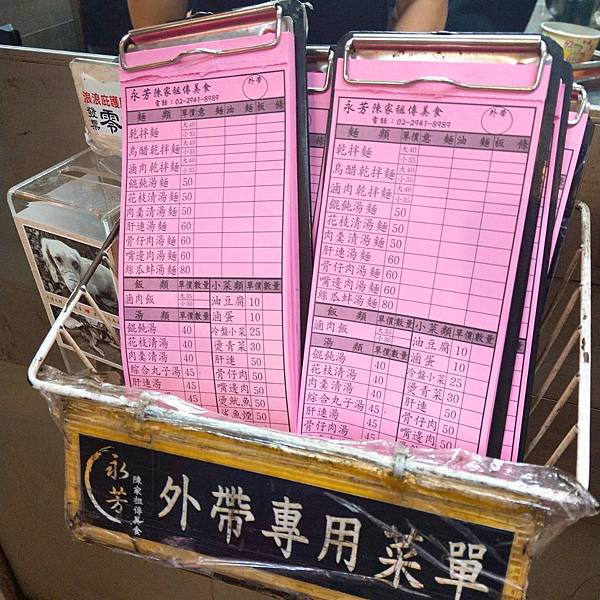 浪浪庇護
發票 零
永芳陳家祖傳美食 外帶
電話:02-2941-8989
麵 類 單價 意 麵 油 麵 板 條
乾拌麵 大40 小35
烏醋乾拌麵 大40 小35
滷肉乾拌麵 大40 小35
餛飩湯麵 50
花枝清湯麵 50
肉羹清湯麵 50
肝連湯麵 60
骨仔肉湯麵 60
嘴邊肉湯麵 60
絲瓜蚌湯麵 80
飯 類 單價 數量 小菜類 單價 數量
滷肉飯 大35 小30 油豆腐 10
湯 類 單價 數量 滷蛋 10
餛飩湯 40 冷盤小菜 25
花枝清湯 40 燙青菜 30
肉羹清湯 40 肝連 50
綜合丸子湯 45 骨仔肉 50
肝連湯 45 嘴邊肉 50
燙魷魚 50
鯊魚煙 50
永芳陳家祖傳美食 外帶
電話:02-2941-8989
麵 類 單價 意 麵 油 麵 板 條
乾拌麵 大40 小35
烏醋乾拌麵 大40 小35
滷肉乾拌麵 大40 小35
餛飩湯麵 50
花枝清湯麵 50
肉羹清湯麵 50
肝連湯麵 60
骨仔肉湯麵 60
嘴邊肉湯麵 60
絲瓜蚌湯麵 80
飯 類 單價 數量 小菜類 單價 數量
滷肉飯 大35 小30 油豆腐 10
湯 類 單價 數量 滷蛋 10
餛飩湯 40 冷盤小菜 25
花枝清湯 40 燙青菜 30
肉羹清湯 40 肝連 50
綜合丸子湯 45 骨仔肉 50
肝連湯 45 嘴邊肉 50
骨仔肉湯 45
永芳
陳家祖傳美食
外帶專用菜單